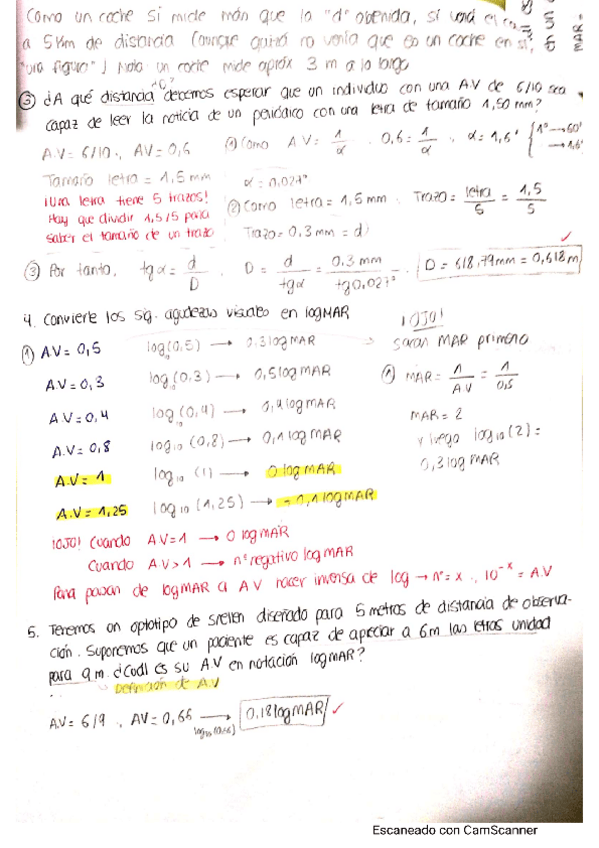 Como un coche si mide más que la "d" obtenida, sí verá el
a 5 Km de distancia (aunque quizá no vería que es un coche en sí,
"una figura") Nota: un coche mide aprox 3 m a lo largo
MAR =
"D"
③ ¿A qué distancia debemos esperar que un individuo con una A.V de 6/10 sea
capaz de leer la noticia de un periódico con una letra de tamaño 1,50 mm?
A.V = 6/10 ∴ AV = 0,6
① Como AV = 1/α ∴ 0,6 = 1/α ∴ α = 1,6' { 1° → 60' → 1,6'
Tamaño letra = 1,5 mm
α = 0,027°
¡Una letra tiene 5 trazos!
Hay que dividir 1,5/5 para
saber el tamaño de un trazo
② Como letra = 1,5 mm ∴ Trazo = letra/5 = 1,5/5
Trazo = 0,3 mm = d
③ Por tanto, tgα = d/D ∴ D = d/tgα = 0,3 mm/tg 0,027° ∴ D = 618,79 mm = 0,618 m ✓
4. Convierte los sig. agudezas visuales en logMAR
① A.V = 0,5 log₁₀(0,5) → 0,3 logMAR
A.V = 0,3 log₁₀(0,3) → 0,5 logMAR
A.V = 0,4 log₁₀(0,4) → 0,4 logMAR
A.V = 0,8 log₁₀(0,8) → 0,1 logMAR
A.V = 1 log₁₀(1) → 0 logMAR
A.V = 1,25 log₁₀(1,25) → -0,1 logMAR
¡OJO!
sacar MAR primero
① MAR = 1/A.V = 1/0,5
MAR = 2
y luego log₁₀(2) =
0,3 logMAR
¡OJO! Cuando AV = 1 → 0 logMAR
Cuando AV > 1 → nº negativo logMAR
Para pasar de logMAR a AV hacer inversa de log → nº = x ∴ 10⁻ˣ = A.V
5. Tenemos un optotipo de Snellen diseñado para 5 metros de distancia de observa-
ción. Suponemos que un paciente es capaz de apreciar a 6m las letras unidad
para 9 m. ¿Cuál es su A.V en notación logMAR?
Definición de A.V
A.V = 6/9 ∴ AV = 0,66 → 0,18 logMAR ✓
log₁₀(0,66)
Escaneado con CamScanner